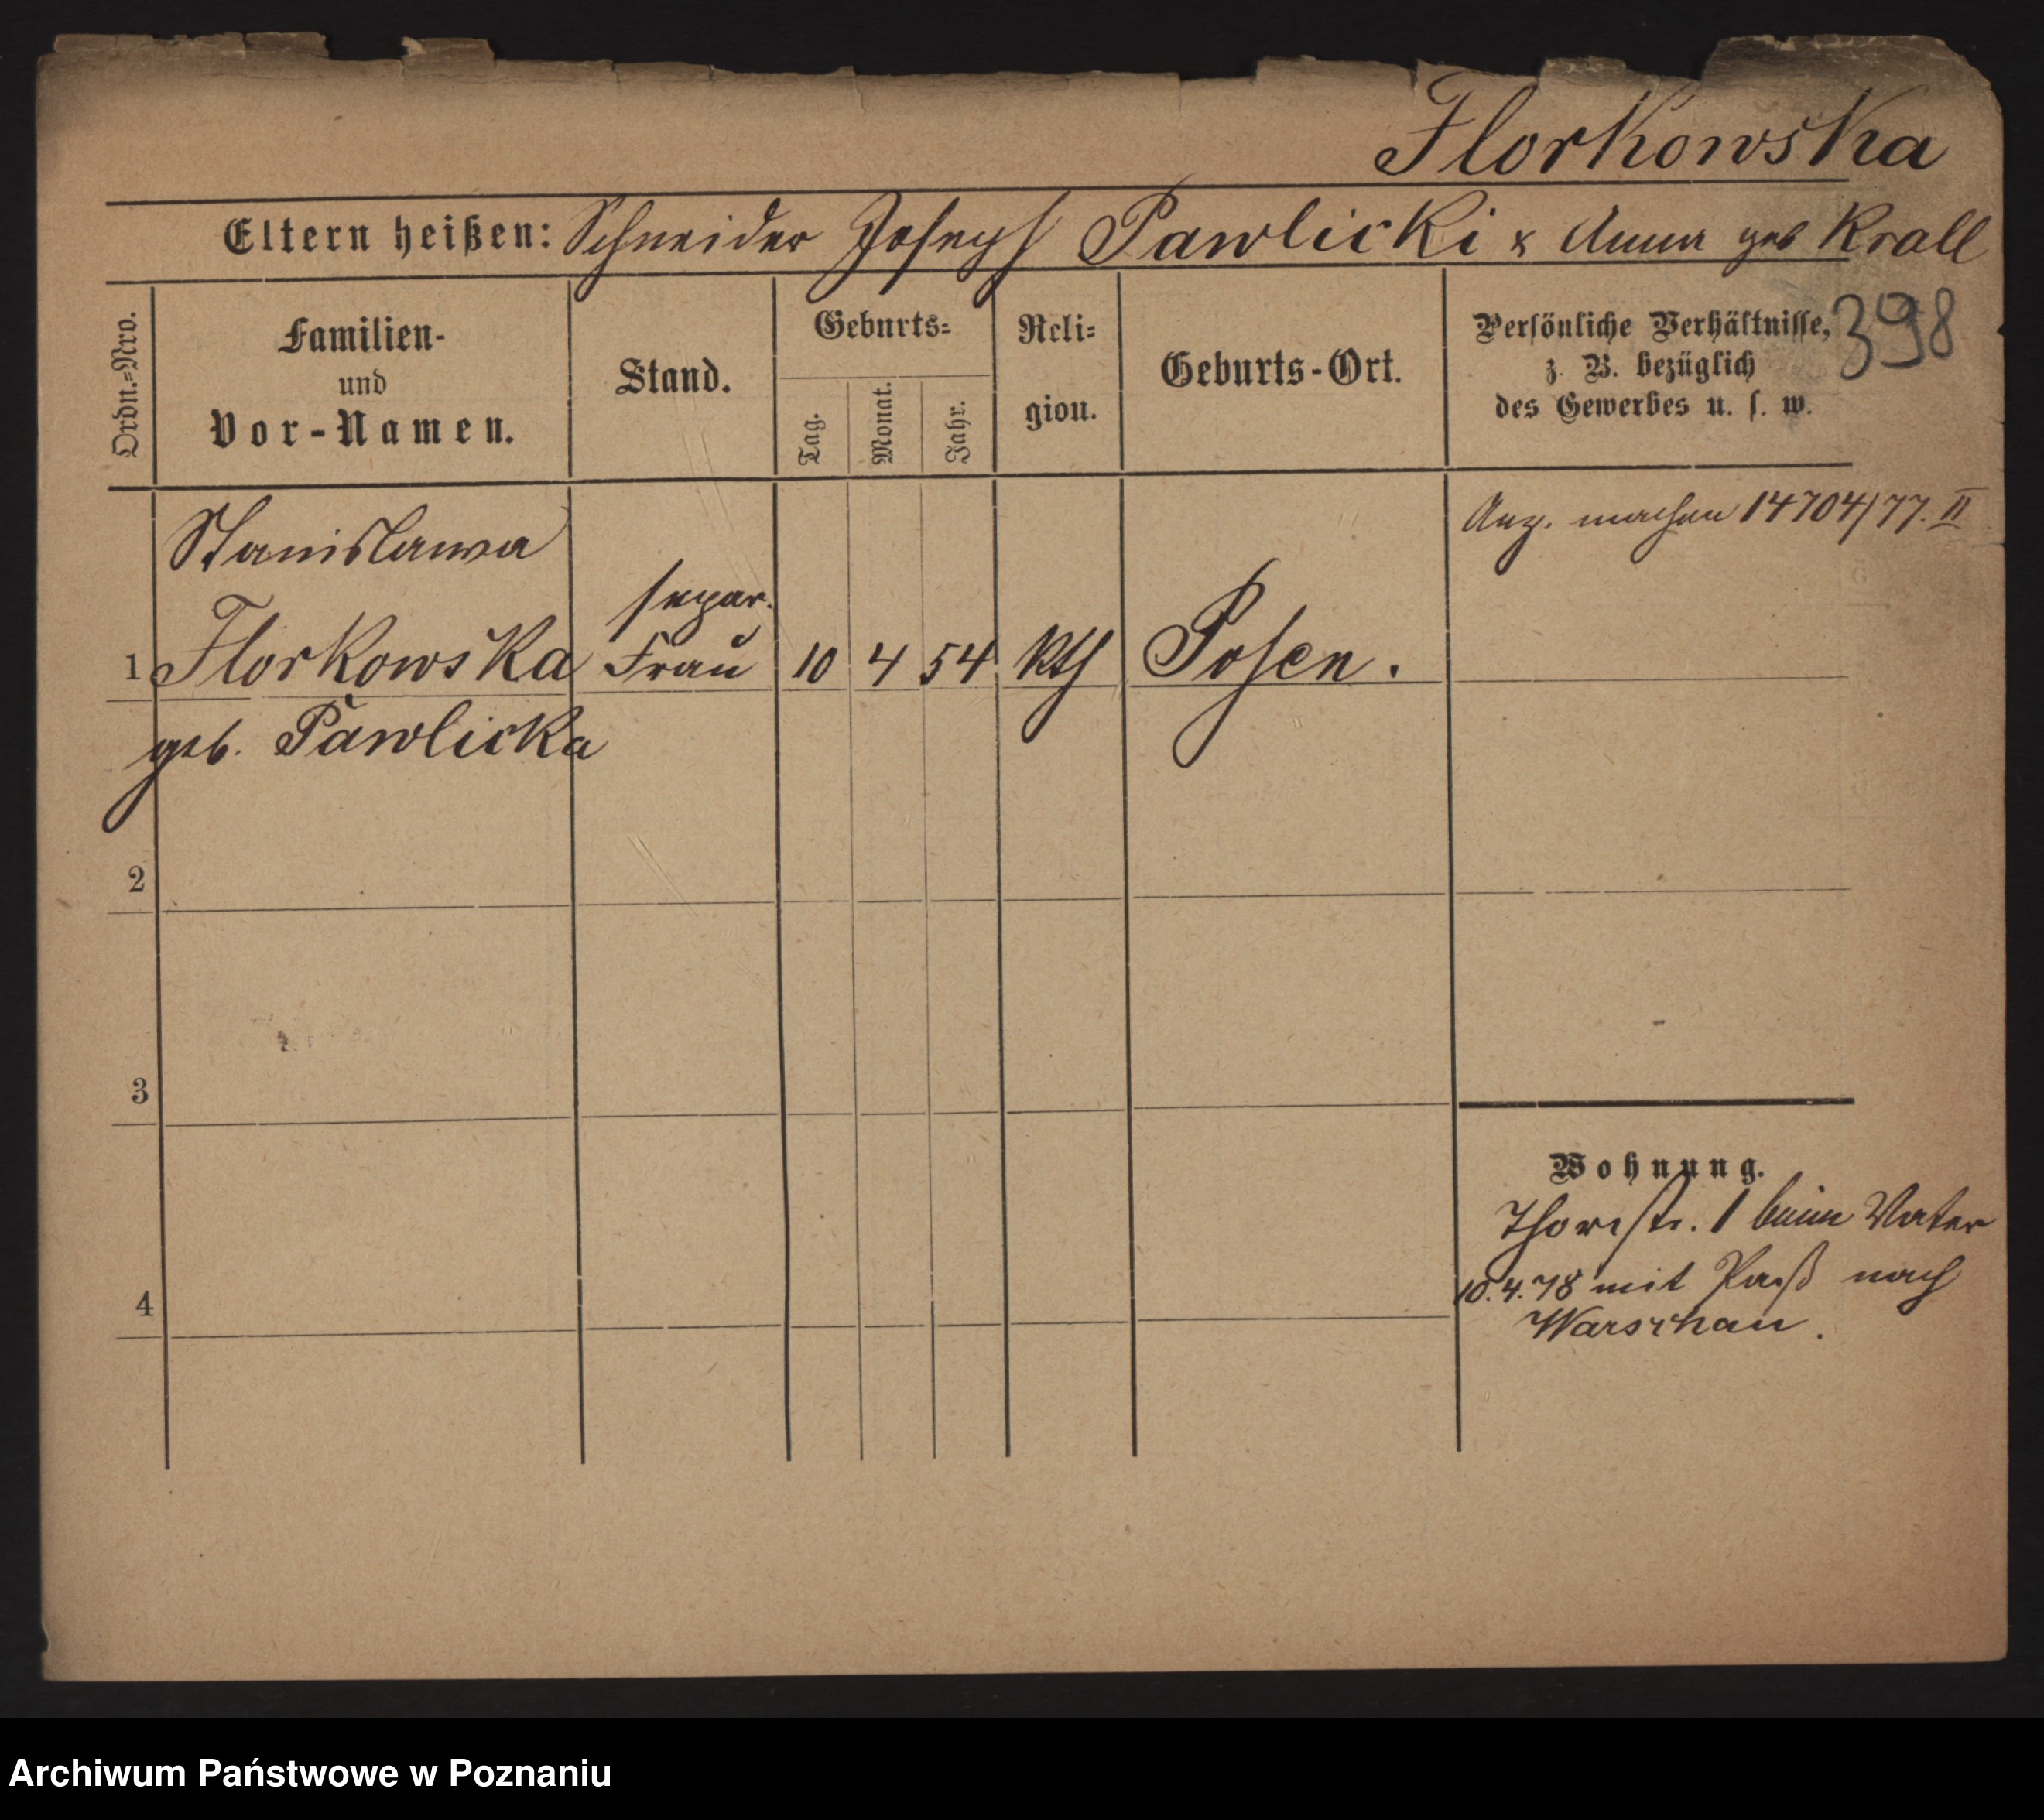 Florkowska
Eltern heißen: Schneider Joseph Pawlicki & Anna geb Krall
398
Ordn.=Nro.
Familien-
und
Vor-Namen.
Stand.
Geburts=
Tag.
Monat.
Jahr.
Reli=
gion.
Geburts-Ort.
Persönliche Verhältnisse,
z. B. bezüglich
des Gewerbes u. s. w.
Stanislawa
separ.
1 Florkowska Frau 10 4 54 kth Posen.
geb. Pawlicka
14704/77. II
2
3
4
Wohnung.
Thorstr. 1 beim Vater
10.4.78 mit Paß nach
Warschau.
Archiwum Państwowe w Poznaniu